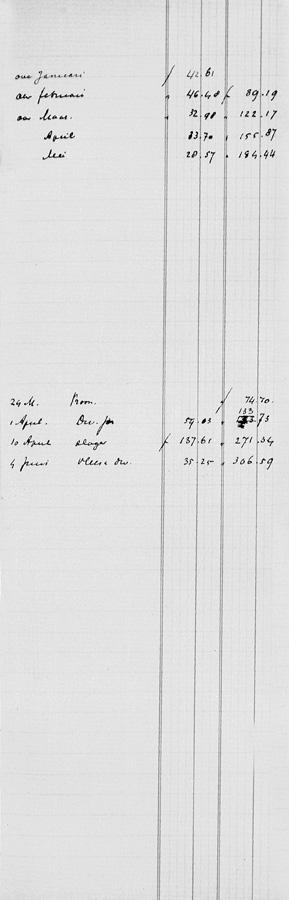 over Januari ƒ 42.61
over februari " 46.48 ƒ 89.19
over Maart. " 32.98 " 122.17
April 33.70 " 155.87
Mei " 28.57 " 184.44
24 M. Kroon. ƒ 74.70
133
1 April. 59.03 " 73
10 April slager ƒ 137.61 " 271.34
4 Juni 35.25 " 306.59